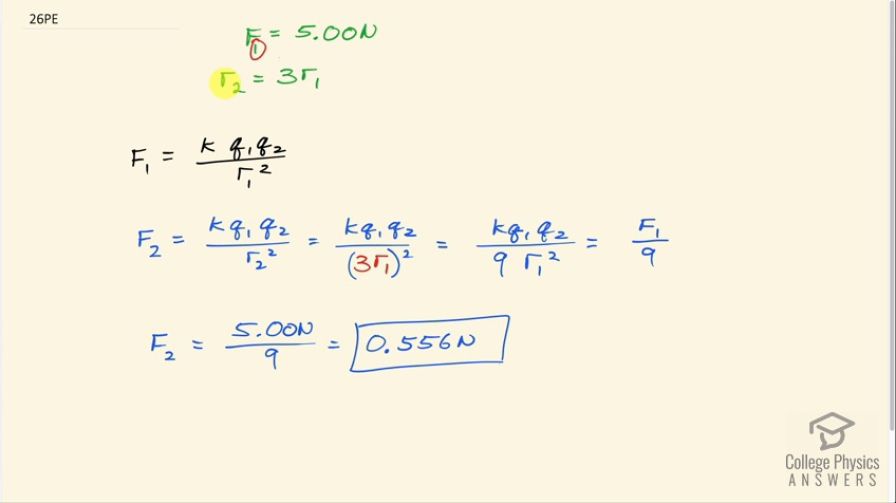 26PE
F₁ = 5.00N
r₂ = 3r₁
F₁ = k q₁q₂ / r₁²
F₂ = kq₁q₂ / r₂² = kq₁q₂ / (3r₁)² = kq₁q₂ / 9 r₁² = F₁ / 9
F₂ = 5.00N / 9 = 0.556N
College Physics
ANSWERS